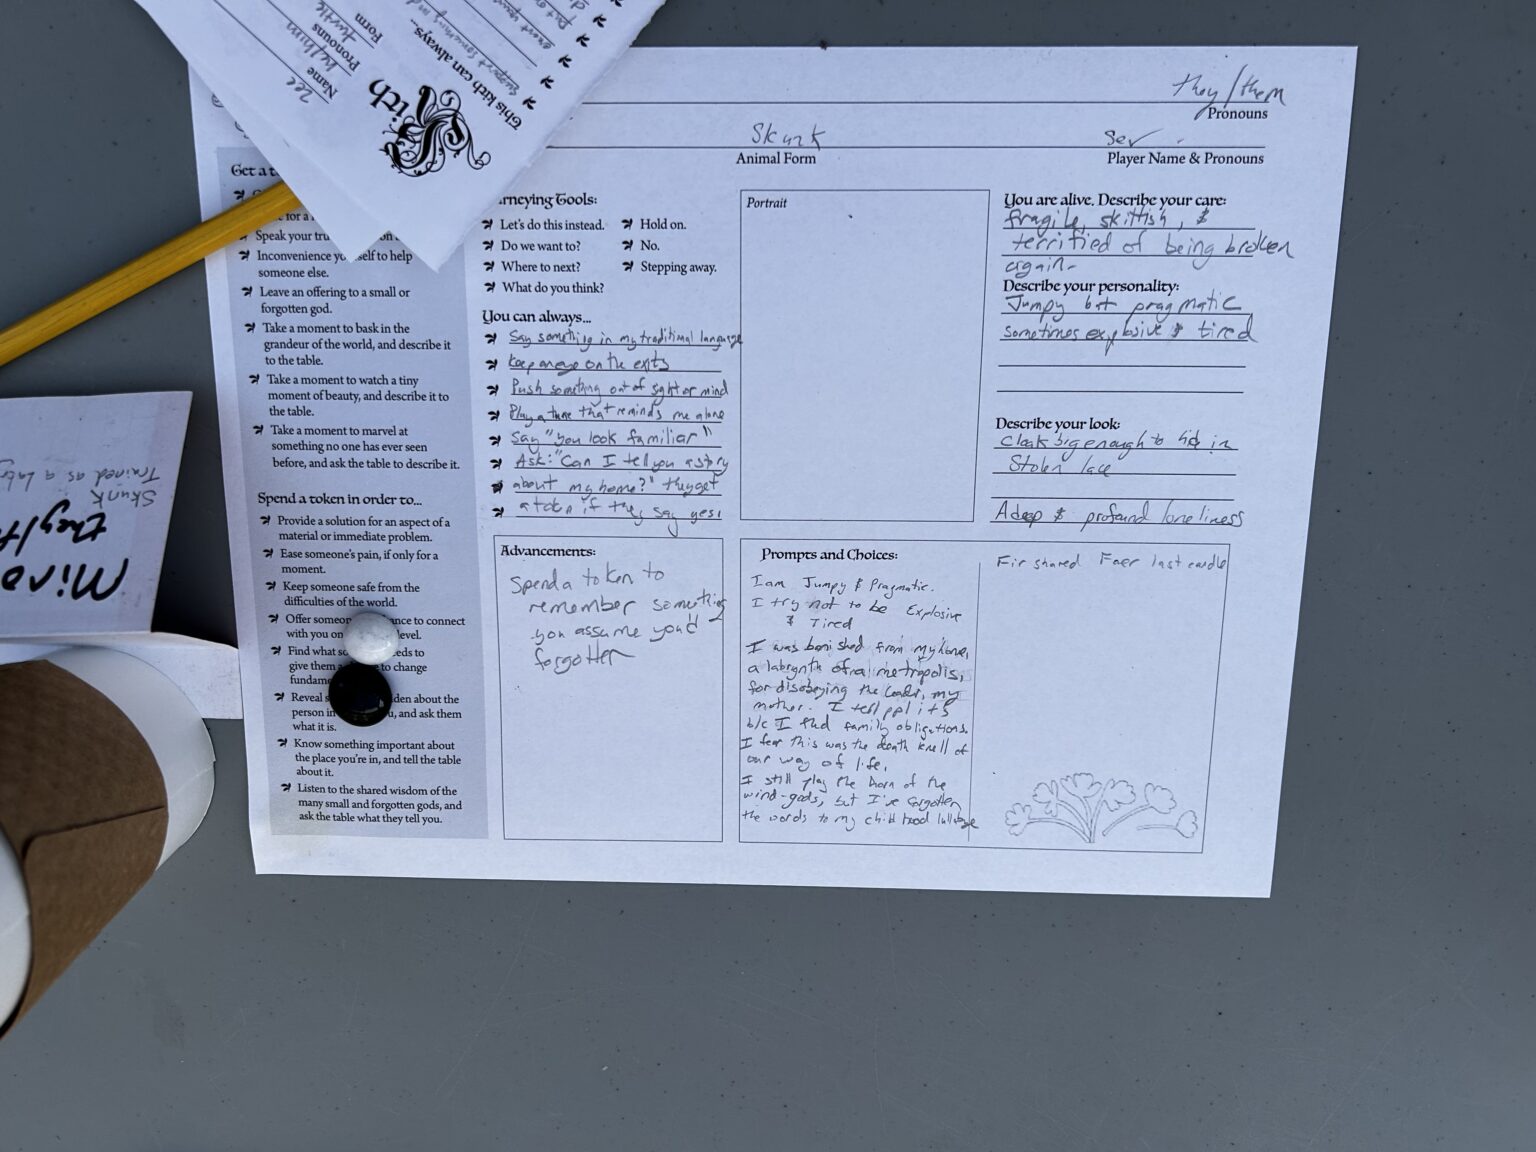 they/them
Pronouns
Skunk
Sev
Animal Form
Player Name & Pronouns
This kith can always...
support something
Kith
Name
Pronouns
he/him
Form
turtle
Get a t
for a
Speak your tru
Inconvenience yo self to help
someone else.
Leave an offering to a small or
forgotten god.
Take a moment to bask in the
grandeur of the world, and describe it
to the table.
Take a moment to watch a tiny
moment of beauty, and describe it to
the table.
Take a moment to marvel at
something no one has ever seen
before, and ask the table to describe it.
Spend a token in order to...
Provide a solution for an aspect of a
material or immediate problem.
Ease someone's pain, if only for a
moment.
Keep someone safe from the
difficulties of the world.
Offer someon ance to connect
with you on level.
Find what so eeds to
give them to change
fundam
Reveal s den about the
person in u, and ask them
what it is.
Know something important about
the place you're in, and tell the table
about it.
Listen to the shared wisdom of the
many small and forgotten gods, and
ask the table what they tell you.
rneying Tools:
Let's do this instead.
Hold on.
Do we want to?
No.
Where to next?
Stepping away.
What do you think?
You can always...
Say something in my traditional language
Keep an eye on the exits
Push something out of sight or mind
Play a tune that reminds me alone
Say "you look familiar"
Ask: "Can I tell you a story
about my home?" they get
a token if they say yes.
Advancements:
Spend a token to
remember something
you assume you'd
forgotten
Portrait
You are alive. Describe your care:
fragile, skittish, &
terrified of being broken
again.
Describe your personality:
Jumpy but pragmatic
sometimes explosive & tired
Describe your look:
Cloak big enough to hide in
Stolen lace
A deep & profound loneliness
Prompts and Choices:
I am Jumpy & Pragmatic.
I try not to be Explosive
& Tired
I was banished from my home,
a labrynth of a metropolis,
for disobeying the leader, my
mother. I tell ppl it's
b/c I fled family obligations.
I fear this was the death knell of
our way of life.
I still play the horn of the
wind-gods, but I've forgotten
the words to my childhood lullabye
Fir shared Faer last candle
Skunk
Trained as a
they/
Mira